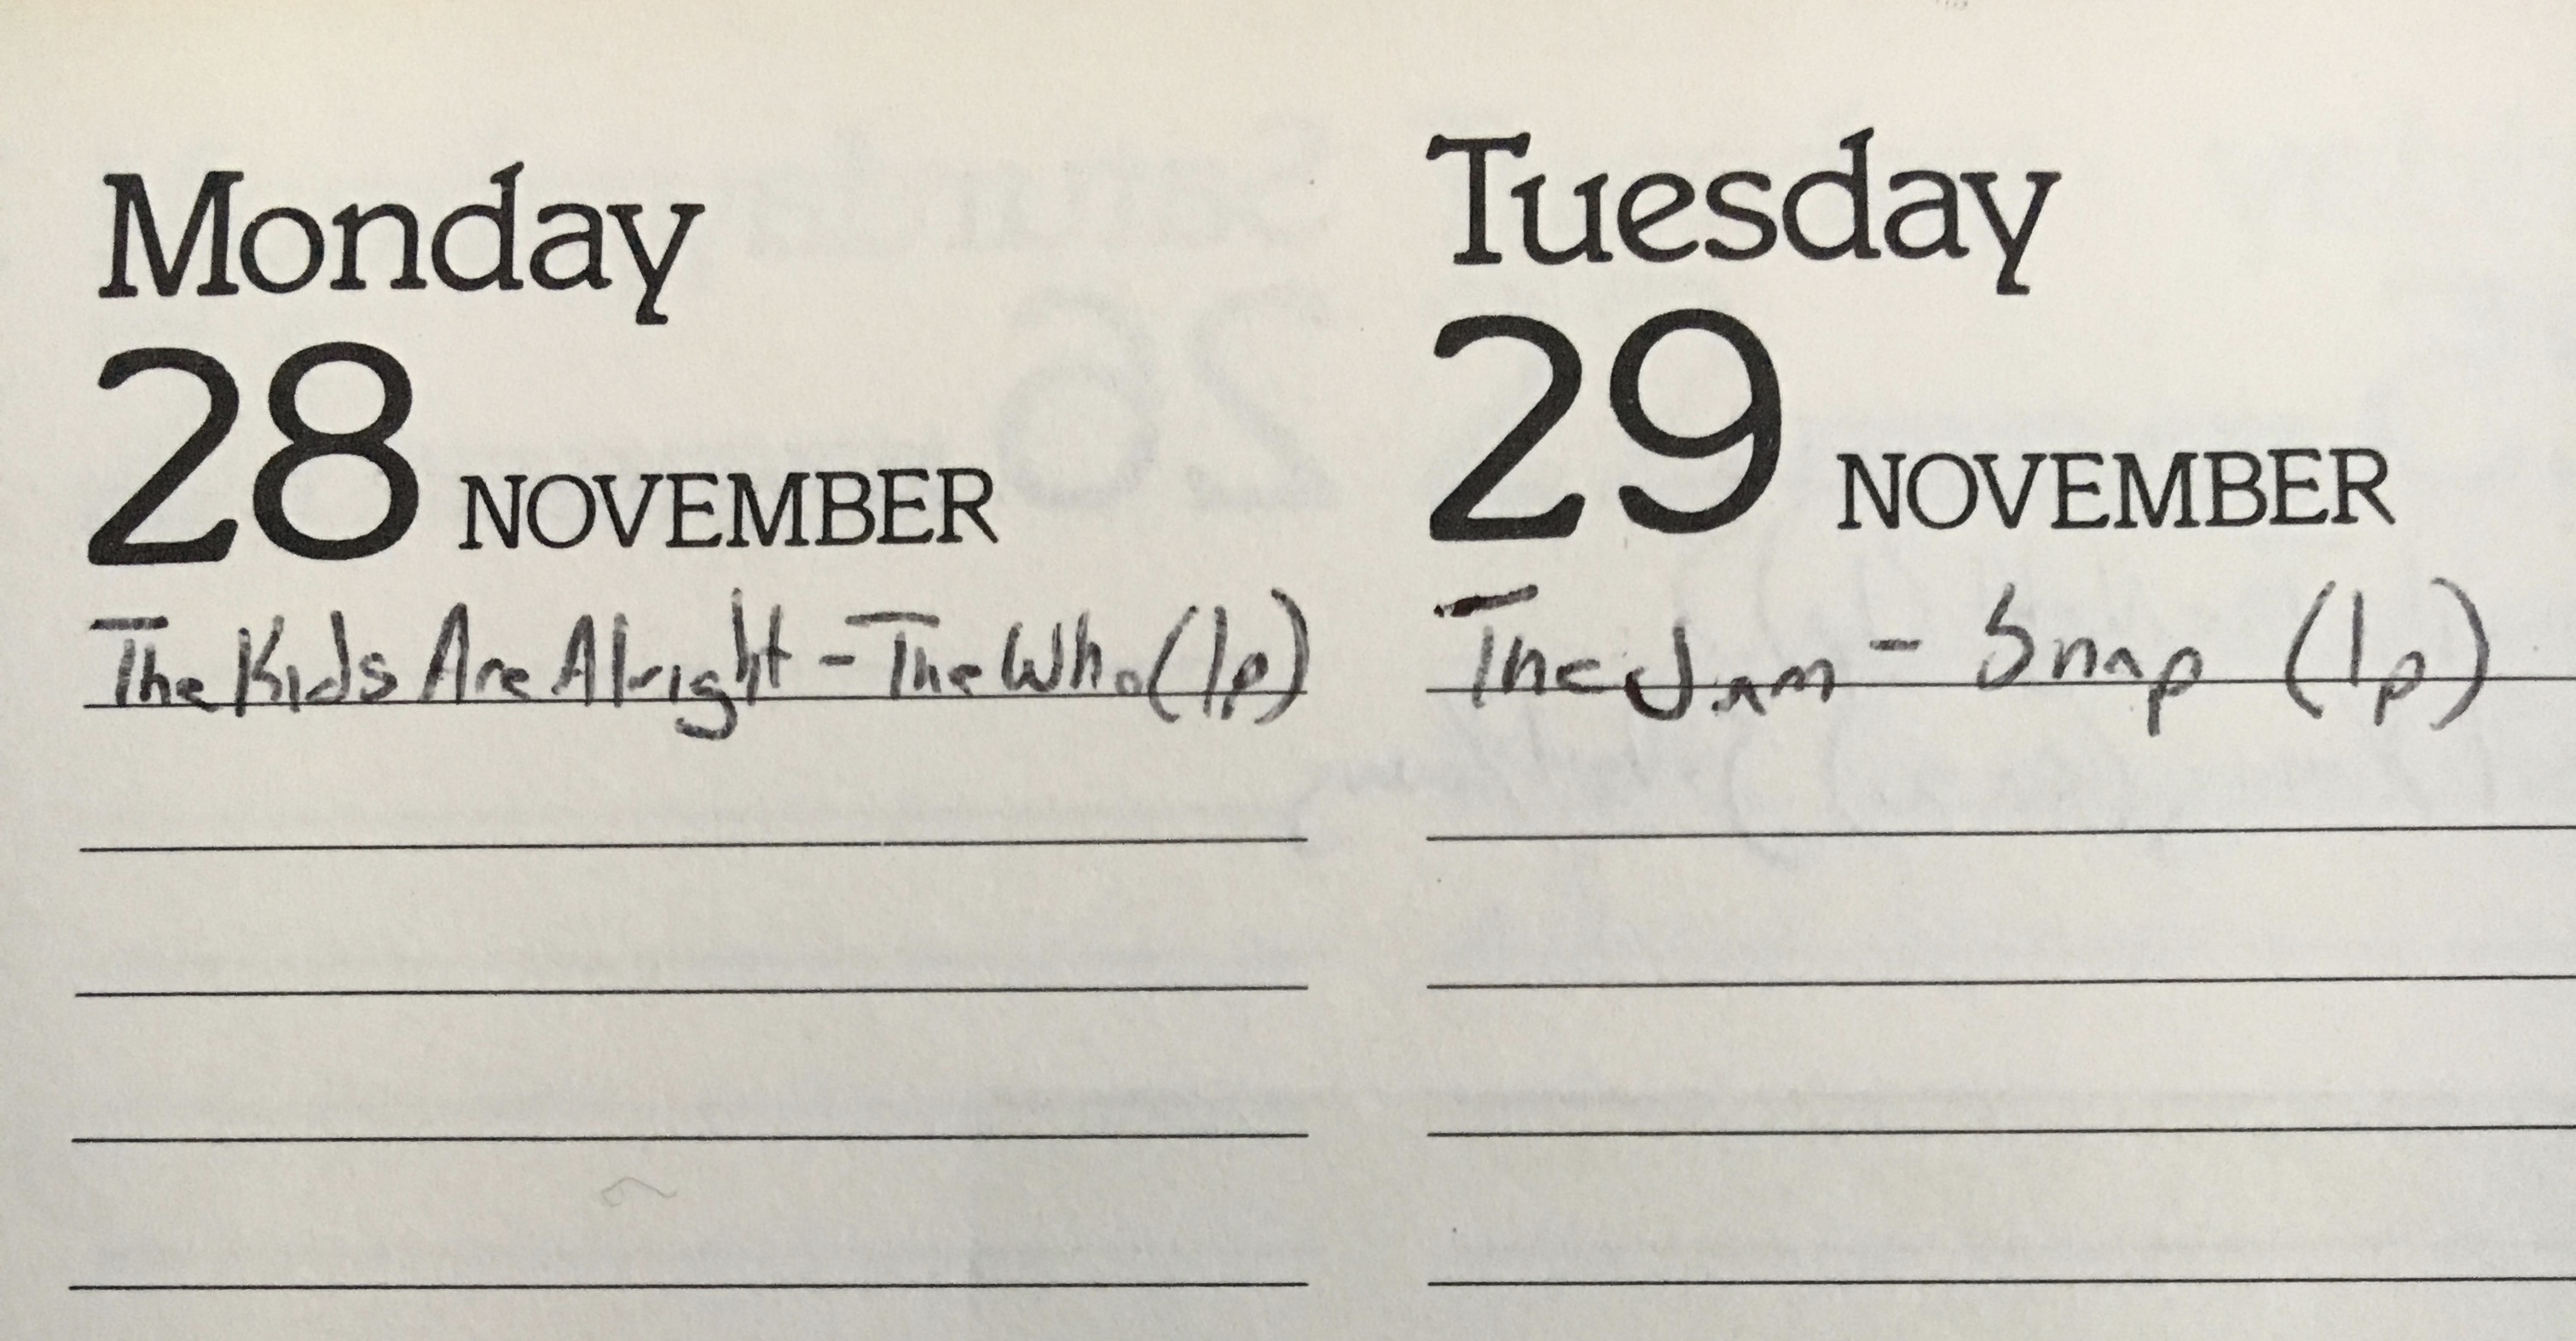 Monday
28 NOVEMBER
The Kids Are Alright - The Who (lp)
Tuesday
29 NOVEMBER
The Jam - Snap (lp)